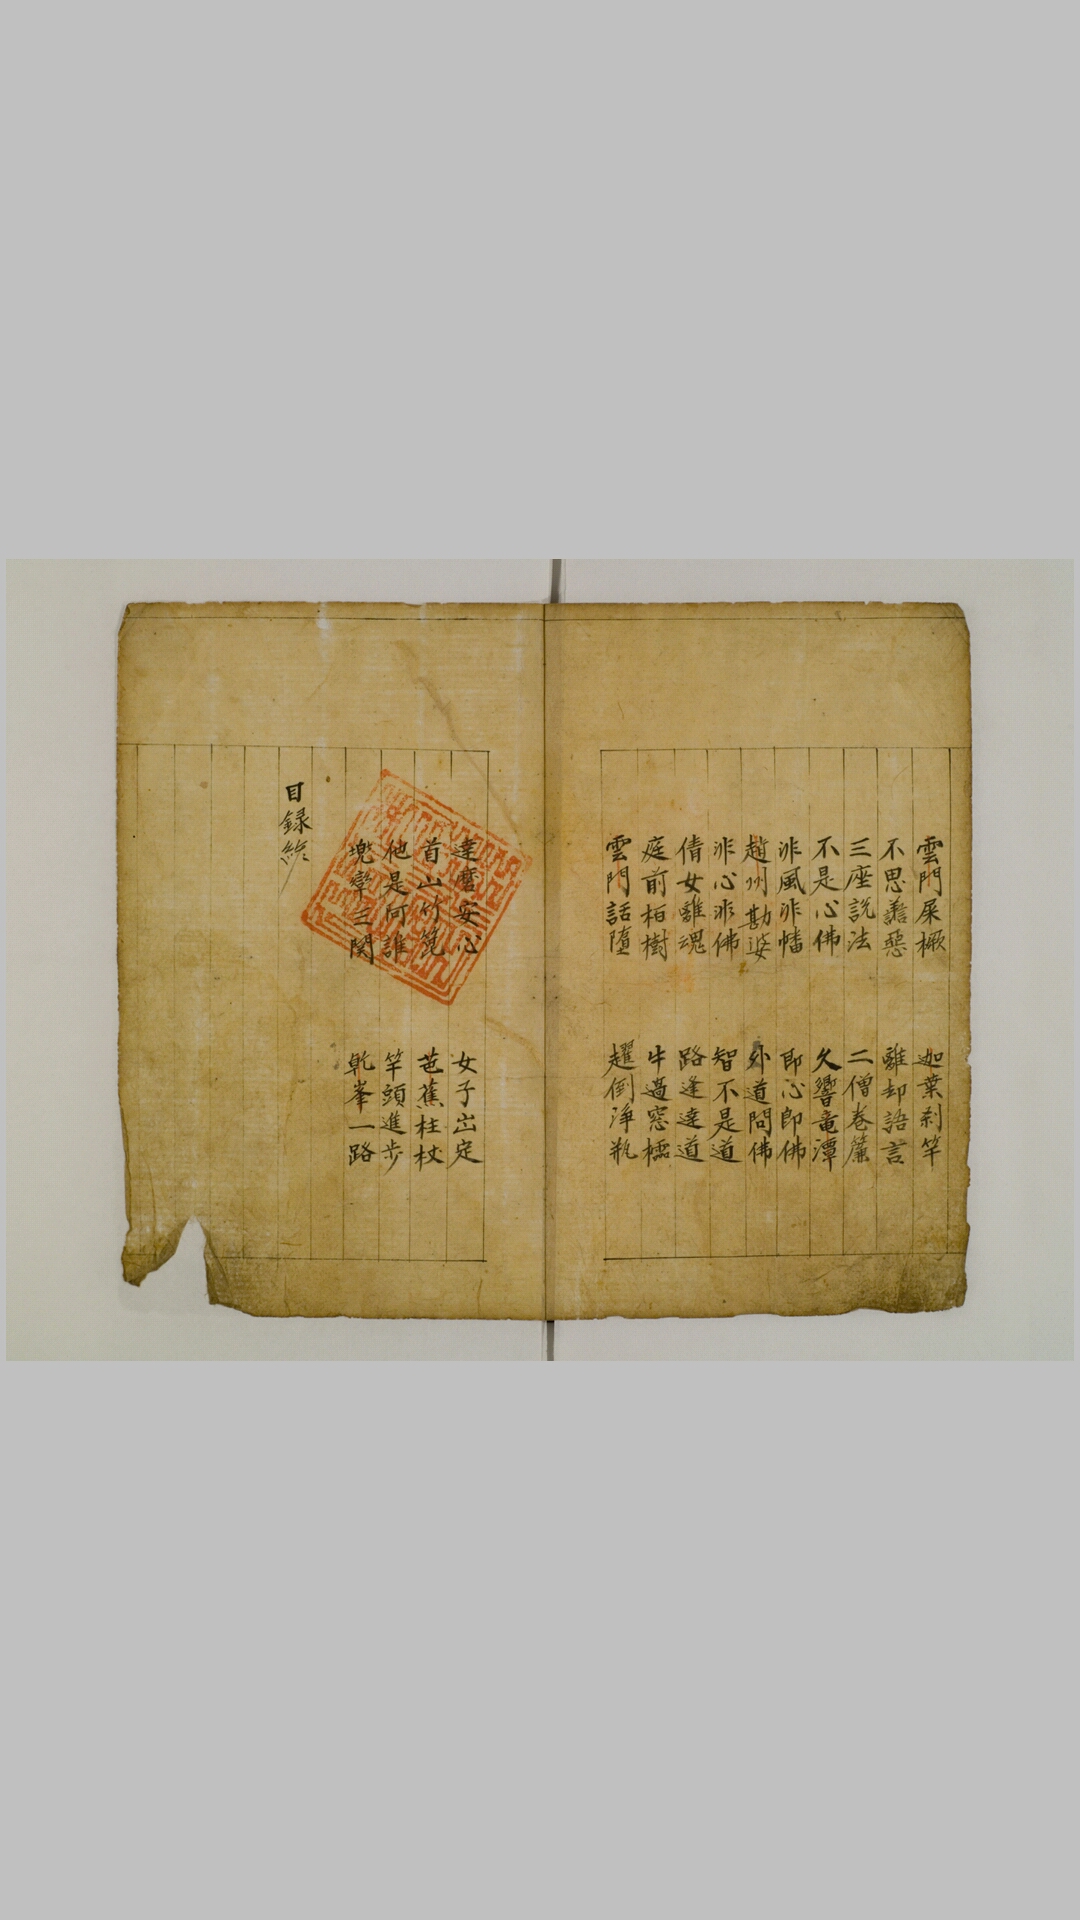 雲門屎橛　迦葉刹竿
不思譱惡　離却語言
三座説法　二僧巻簾
不是心佛　久響竜潭
非風非幡　即心即佛
趙州勘婆　外道問佛
非心非佛　智不是道
倩女離魂　路逢達道
庭前栢樹　牛過窓檽
雲門話堕　趯倒浄瓶
達磨安心　女子出定
首山竹篦　芭蕉柱杖
他是何誰　竿頭進歩
兠率三関　乾峯一路
目録終